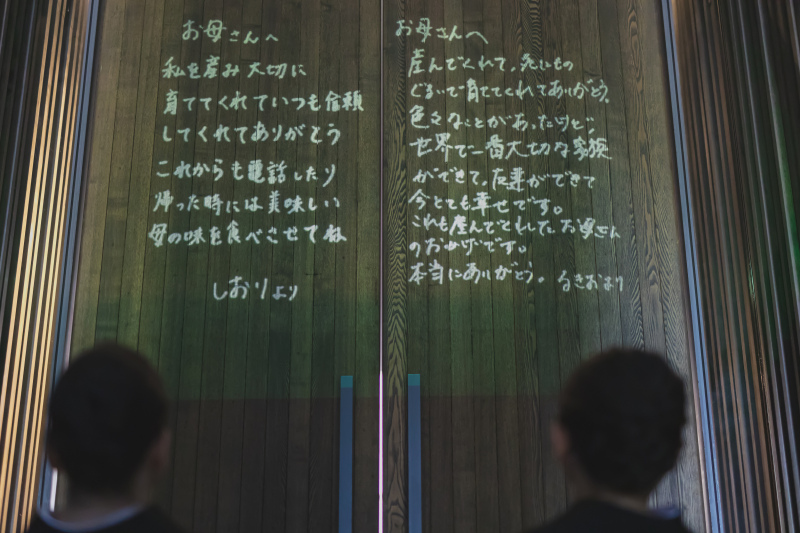 お母さんへ
私を産み大切に
育ててくれていつも信頼
してくれてありがとう
これからも電話したり
帰った時には美味しい
母の味を食べさせてね
しおりより
お母さんへ
産んでくれて、死にもの
ぐるいで育ててくれてありがとう。
色々なことがあったけど、
世界で一番大切な家族
ができて、友達ができて
今とても幸せです。
これも産んでくれた、お母さん
のおかげです。
本当にありがとう。
より